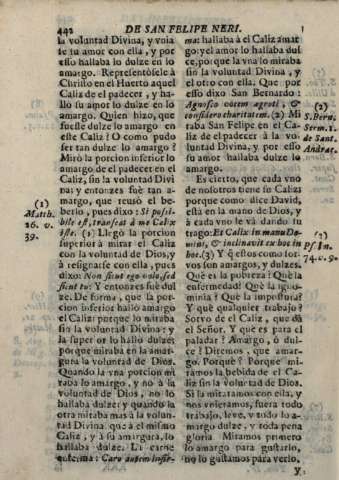 442
DE SAN FELIPE NERI.
la voluntad Divina, y vuia
se tu amor con ella, y por
esso hallaba lo dulze en lo
amargo. Representósele à
Christo en el Huerto aquel
Caliz de el padecer, y ha-
llò su amor lo dulze en lo
amargo. Quien hizo, que
fuesse dulze lo amargo en
este Caliz? O como pudo
ser tan dulze lo amargo?
Mirò la porcion inferior lo
amargo de el padecer en el
Caliz, sin la voluntad Divi
na; y entonces fuè tan a-
margo, que reusò el be-
berlo, pues dixo: Si possi-
bile est, transeat à me Calix
iste. (1) Llegò la porcion
superior à mirar el Caliz
con la voluntad de Dios, y
à resignarse con ella, pues
dixo: Non sicut ego volo, sed
sicut tu: Y entonces fuè dul
ze. De forma, que la por-
cion inferior hallò amargo
el Caliz: porque lo miraba
sin la voluntad Divina: y
la superior lo hallò dulze;
porque miraba en la amar-
gura la voluntad de Dios.
Quando la vna porcion mi
raba lo amargo, y no à la
voluntad de Dios, no lo
hallaba dulze: y quando la
otra mirabà mas à la volun-
tad Divina que à el mismo
Caliz, y à su amargura, lo
hallaba dulze. La carne
enferma: Caro autem infir-
(1)
Matth.
26. v.
39.
ma: hallaba à el Caliz amar
go: y el amor lo hallaba dul
ce, porque la vna lo miraba
sin la voluntad Divina, y
el otro con ella. Que por
esso dixo San Bernardo:
Agnosco vocem agroti, &
considero charitatem. (2) Mi
raba San Felipe en el Ca-
liz de el padecer à la vo-
luntad Divina, y por esso
su amor hallaba dulze lo
amargo.
Es cierto, que cada vno
de nosotros tiene su Caliz;
porque como dice David,
está en la mano de Dios, y
à cada vno le và dando su
trago: Et Calix in manu Do-
mini, & inclinavit ex hoc in
hoc. (3) Y q̃ estos como sor-
vos son amargos, y dulzes.
Què es la pobreza? Què la
enfermedad? Què la igno-
minia? Què la impostura?
Y què qualquier trabajo?
Sorvo de el Caliz, que dà
el Señor. Y què es para el
paladar? Amargo, ò dul-
ce? Diremos, que amar-
go. Porquè? Porque mi-
ramos la bebida de el Ca-
liz sin la voluntad de Dios.
Si la miraramos con ella, y
nos vnieramos, fuera todo
trabajo, leve, y todo lo a-
margo dulze, y toda pena
gloria. Miramos primero
lo amargo para gustarlo,
no lo gustamos para verlo.
(2)
S. Bern.
Serm. 1.
de Sant.
Andræ.
(3)
Ps. In.
74. v. 9.
Y